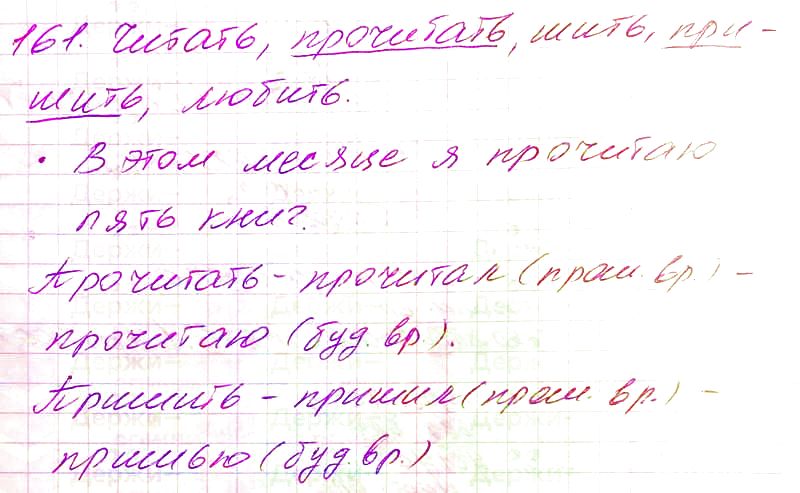 161. Читать, прочитать, шить, при-
шить, любить.
• В этом месяце я прочитаю
пять книг.
Прочитать - прочитал (прош. вр.) -
прочитаю (буд. вр.).
Пришить - пришил (прош. вр.) -
пришью (буд. вр.)